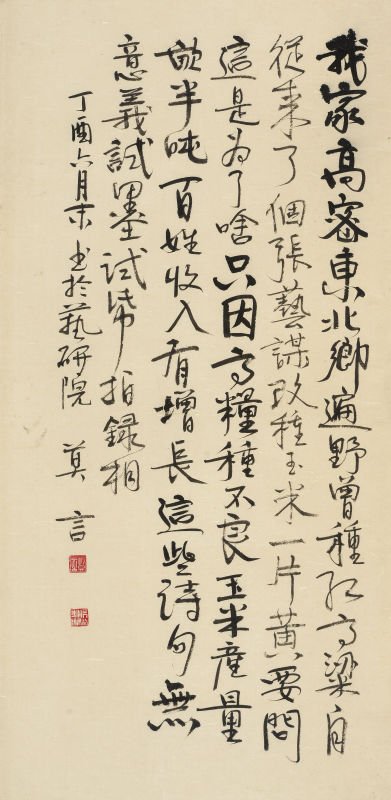 我家高密東北鄉遍野曾種紅高粱自
從来了個張藝謀改種玉米一片黃要問
這是为了啥只因高糧種不良玉米産量
畝半吨百姓收入有增長這些詩句無
意義試墨試筆拍録相
丁酉六月末书於藝研院 莫言